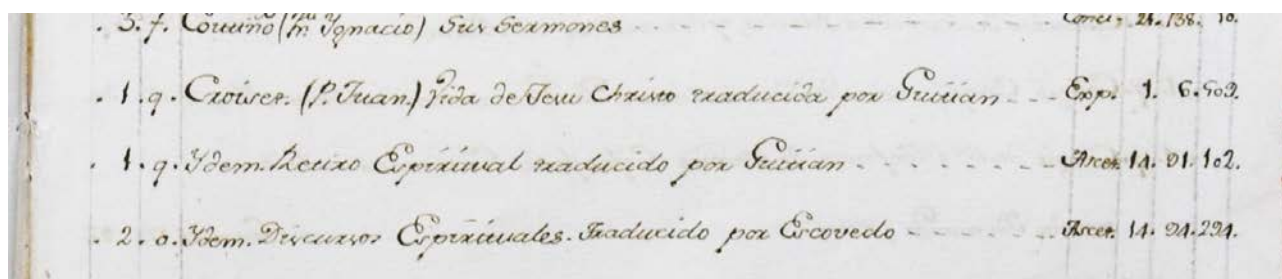 . 3. f. Coutiño (Fr. Ygnacio) Sus Sermones - - - Conci. 24. 138. 10.
. 1. q. Croiset. (P. Juan.) Vida de Jesu Christo traducida por Guitian - - - Exp. 1. 6. 509.
. 1. q. Ydem. Retiro Espiritual traducido por Guitian - - - - - - Ascet. 14. 91. 102.
. 2. o. Ydem. Discursos Espirituales. Traducido por Escovedo - - - Ascet. 14. 94. 294.